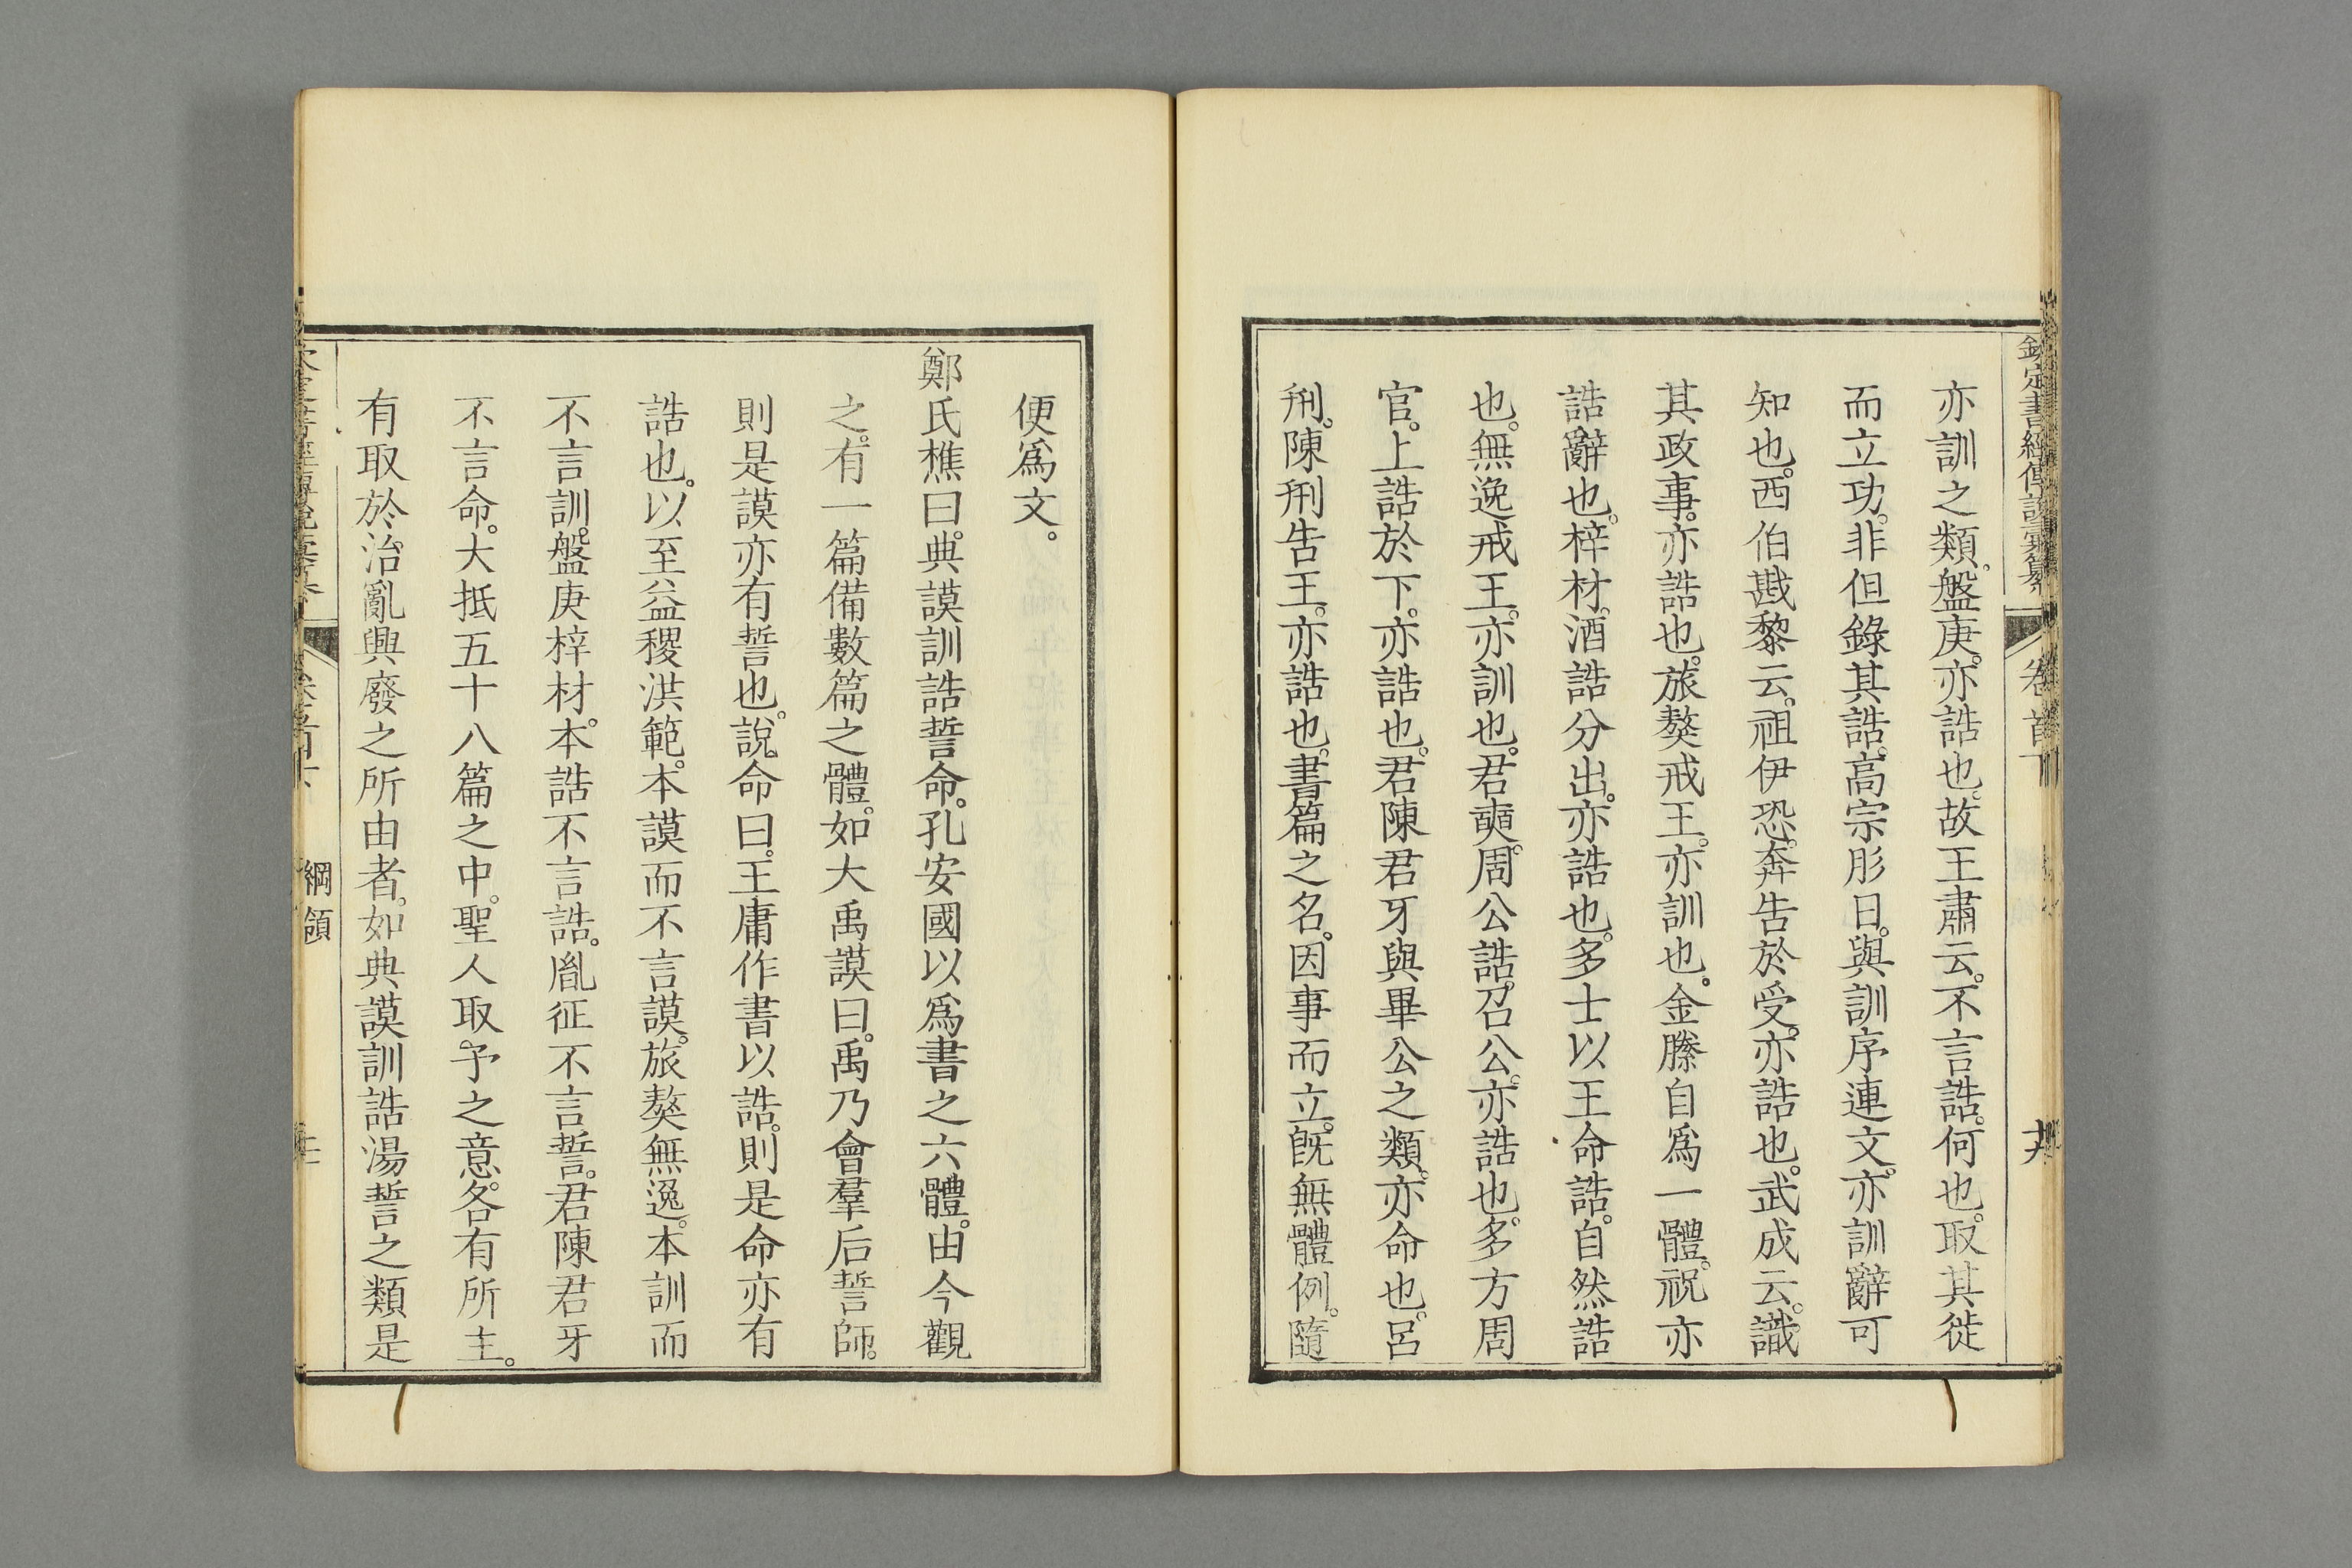 欽定書經傳說彙纂 卷首下
亦訓之類。盤庚。亦誥也。故王肅云。不言誥。何也。取其徙
而立功。非但錄其誥。高宗肜日。與訓序連文。亦訓辭可
知也。西伯戡黎云。祖伊恐。奔告於受。亦誥也。武成云。識
其政事。亦誥也。旅獒戒王。亦訓也。金縢自爲一體。祝亦
誥辭也。梓材。酒誥分出。亦誥也。多士以王命誥。自然誥
也。無逸戒王。亦訓也。君奭。周公誥召公。亦誥也。多方周
官。上誥於下。亦誥也。君陳君牙與畢公之類。亦命也。呂
刑。陳刑告王。亦誥也。書篇之名。因事而立。旣無體例。隨
便爲文。
鄭氏樵曰。典謨訓誥誓命。孔安國以爲書之六體。由今觀
之。有一篇備數篇之體。如大禹謨曰。禹乃會羣后誓師。
則是謨亦有誓也。說命曰。王庸作書以誥。則是命亦有
誥也。以至益稷洪範。本謨而不言謨。旅獒無逸。本訓而
不言訓。盤庚梓材。本誥不言誥。胤征不言誓。君陳君牙
不言命。大抵五十八篇之中。聖人取予之意。各有所主。
有取於治亂興廢之所由者。如典謨訓誥湯誓之類是
綱領